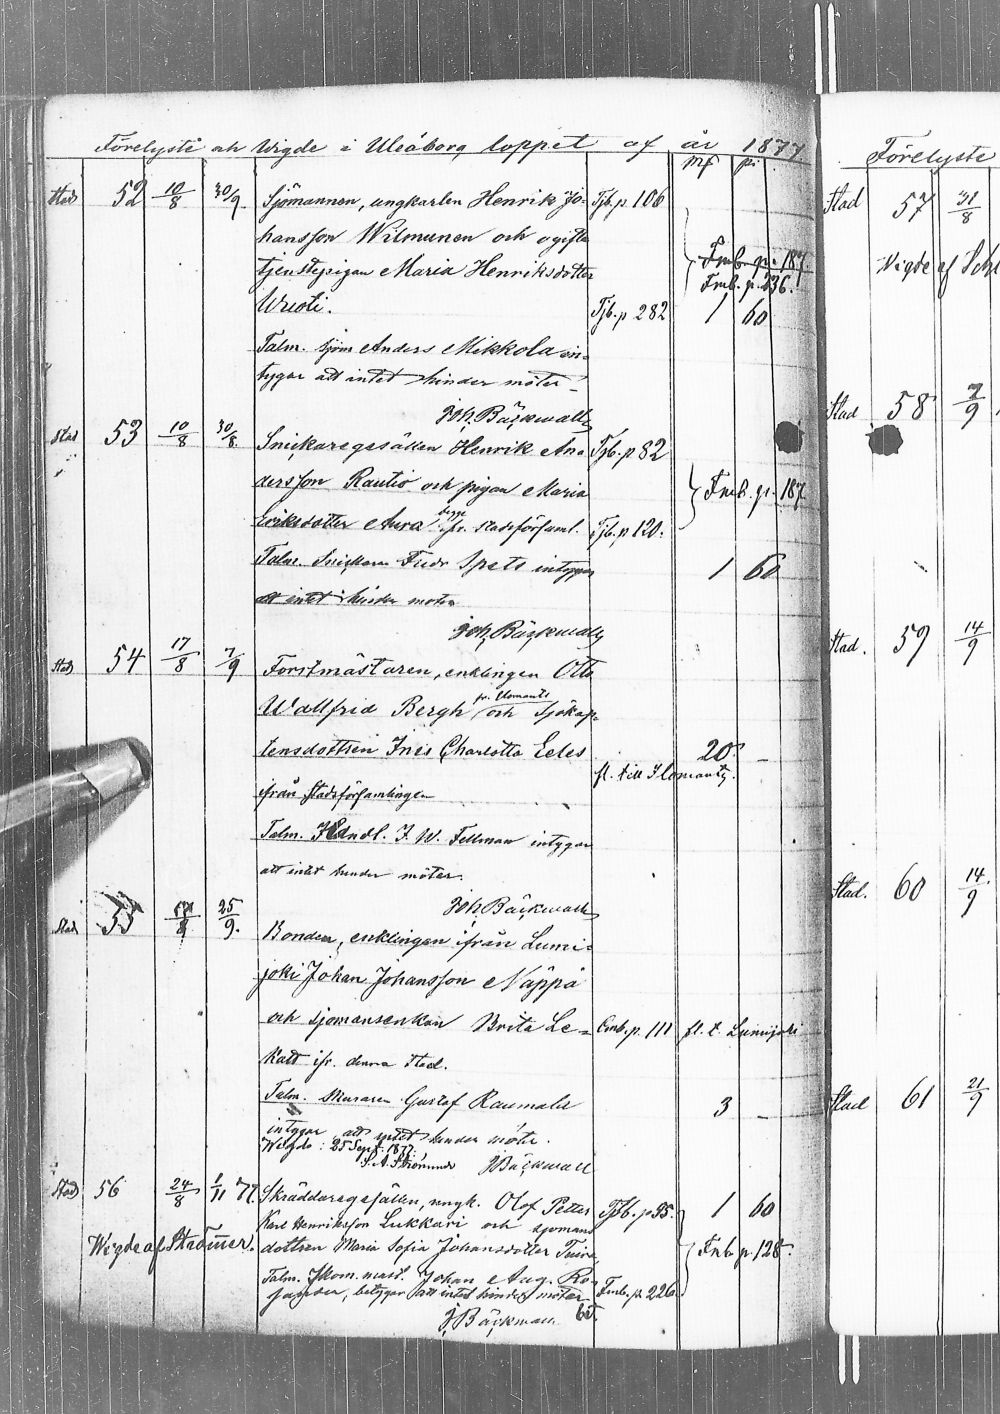 Förelyste och Wigde i Uleåborg loppet af år 1877
Mf pi
Stad 52 10/8 30/9 Sjömannen, ungkarlen Henrik Jo- Tjb. p 106
hansson Wilmunen och ogifta
tjenstepigan Maria Henriksdotter Fmb. p. 187.
Fmb. p. 236.
Wuoti. Tjb. p 282 1 60
Talm. sjöm Anders Mikkola in-
tygar att intet hinder möter
Joh. Bäckwall
Stad 53 10/8 30/8 Snickaregesällen Henrik An- Tjb. p 82
dersson Rautio och pigan Maria Fmb. p. 187
begge
Eriksdotter Aura fr. stadsförsaml. Tjb. p 120.
Talm. Snickaren Fredr Spets intygar 1 60
att intet hinder möter
Joh. Bäckwall
Stad 54 17/8 7/9 Forstmästaren, enklingen Otto
fr. Ilomants
Wallfrid Bergh och Sjökap-
tensdottren Ines Charlotta Eeles 20. –
fl. till Ilomants.
ifrån stadsförsamlingen
Talm. Handl. J. W. Fellman intygar
att intet hinder möter.
Joh. Bäckwall
Stad 55 /8 25/9. Bonden, enklingen ifrån Lumi-
joki Johan Johansson Näppä
och sjömansenkan Brita Le- Emb. p. 111 fl. t. Lumijoki
katt ifr. denna stad.
Talm. Muraren Gustaf 3 –
intygar att intet hinder möter.
Wigde: 25 Sept. 1877.
J Bäckwall
Stad 56 24/8 1/11 77. Skräddaregesällen, ungk. Olof Petter Tjb. p 95. 1 60
Karl Henriksson Lukkari och sjömans
Wigde af dottren Maria Sofia Johansdotter Tuira Fmb p 128.
Talm. Skom. mäst. Johan Aug. Ro-
betygar att intet hinder möter Fmb. p. 226
bet.
J. Bäckwall
Förelyste
Stad 57 31/8
Wigde af
Stad 58 7/9
Stad. 59 14/9
Stad. 60 14/9
Stad 61 21/9